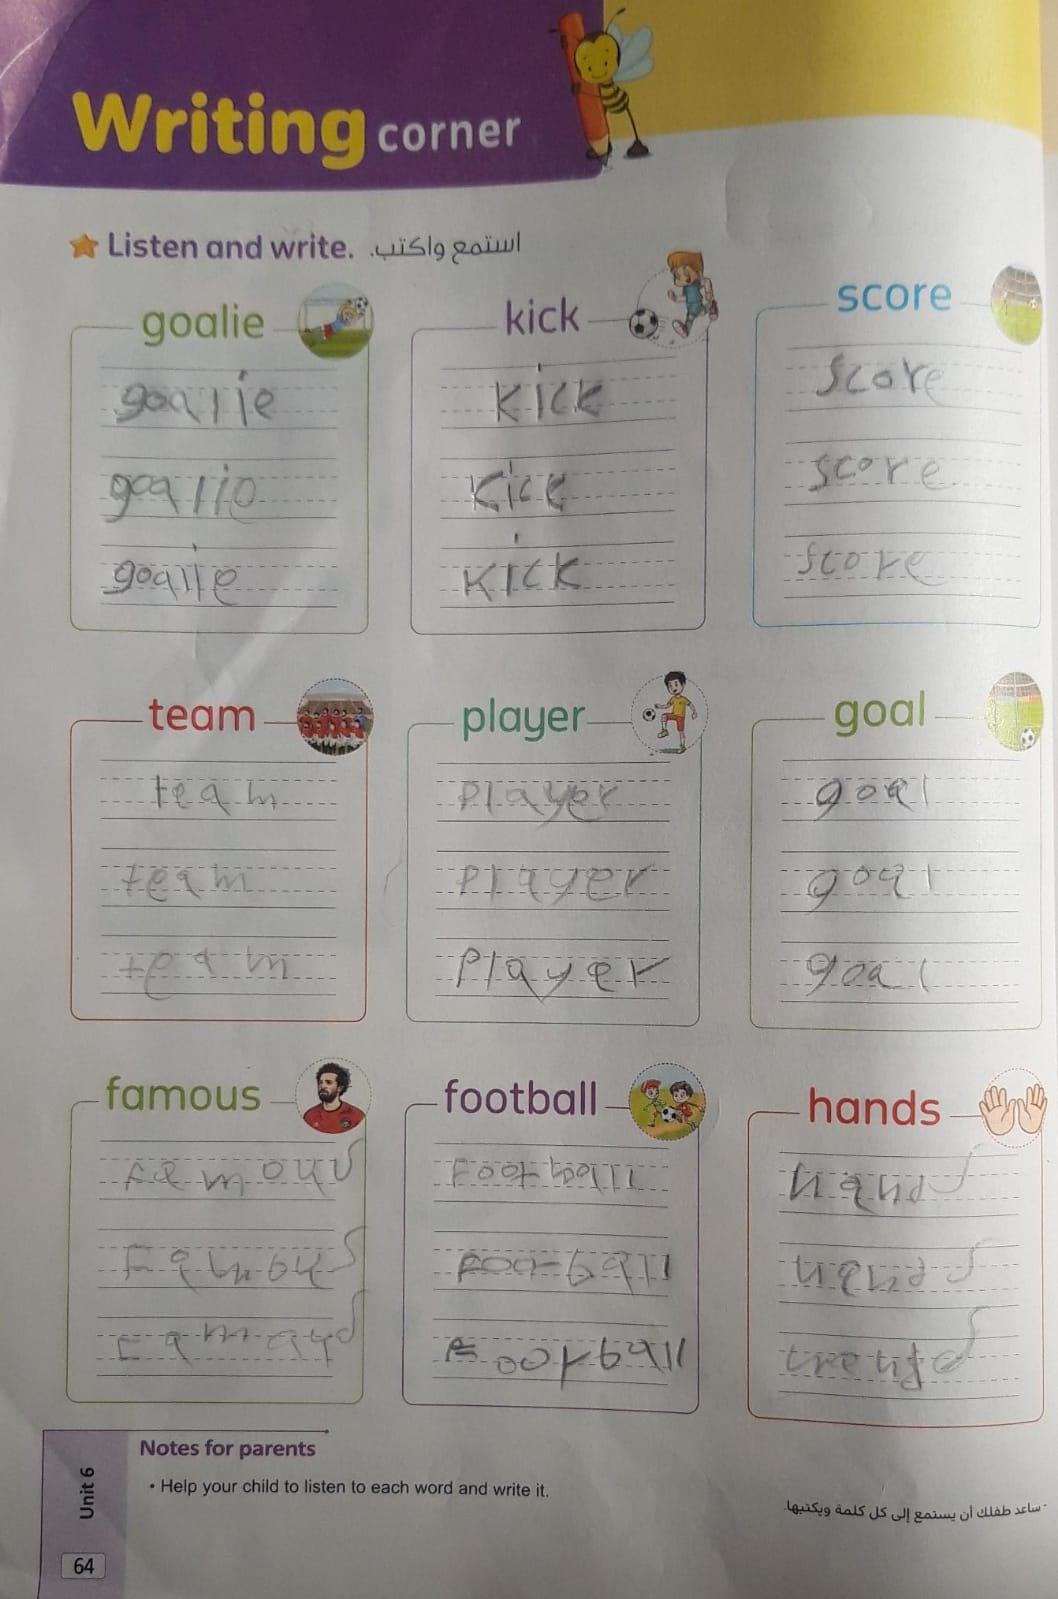 Writing corner
Listen and write. استمع واكتب.
goalie
goalie
goalie
goalie
kick
kick
kick
kick
score
score
score
score
team
team
team
team
player
player
player
player
goal
goal
goal
goal
famous
famous
football
football
football
football
hands
Notes for parents
• Help your child to listen to each word and write it.
- ساعد طفلك أن يستمع إلى كل كلمة ويكتبها.
Unit 6
64